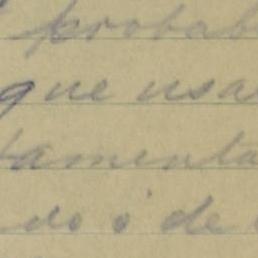 probab
que usa
tamenta
do o de